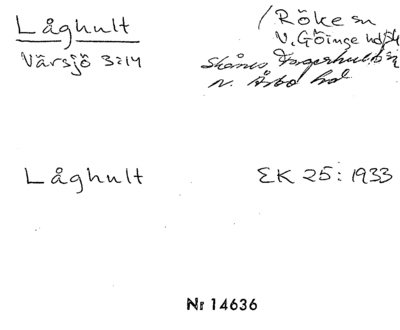 Låghult
Värsjö 3:14
/Röke sn
V. Göinge hd
Skånes Fagerhults sn
N. Åsbo hd
Låghult
EK 25:1933
Nr 14636